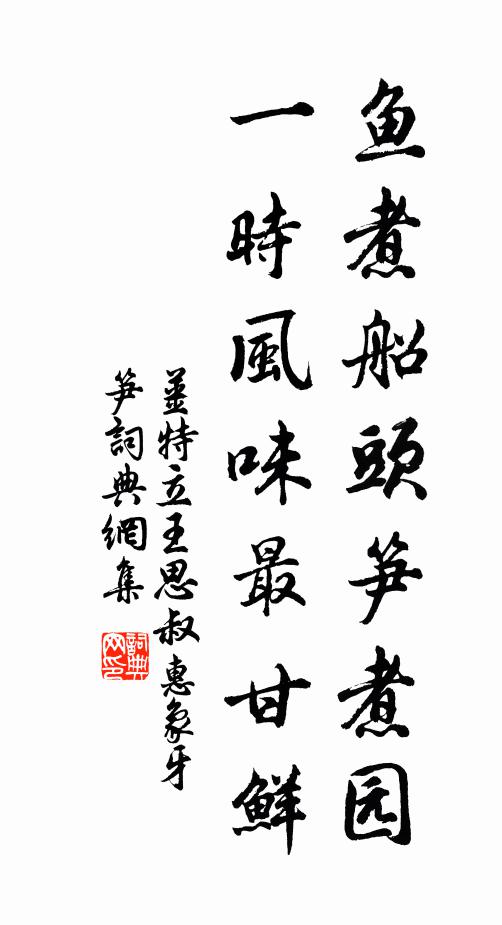 鱼煮船頭笋煮园
一時風味最甘鮮
姜特立王思叔惠象牙
笋詞典網集
詞典网印